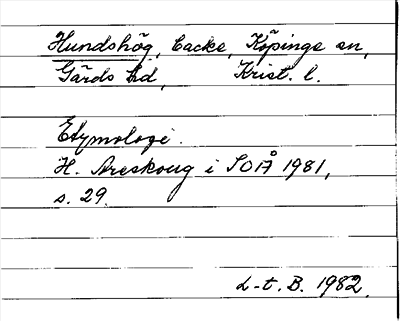 Hundshög, backe, Köpinge sn,
Gärds hd, Krist. l.
Etymologi.
H. Areskoug i SOÅ 1981,
s. 29.
L-t. B. 1982.